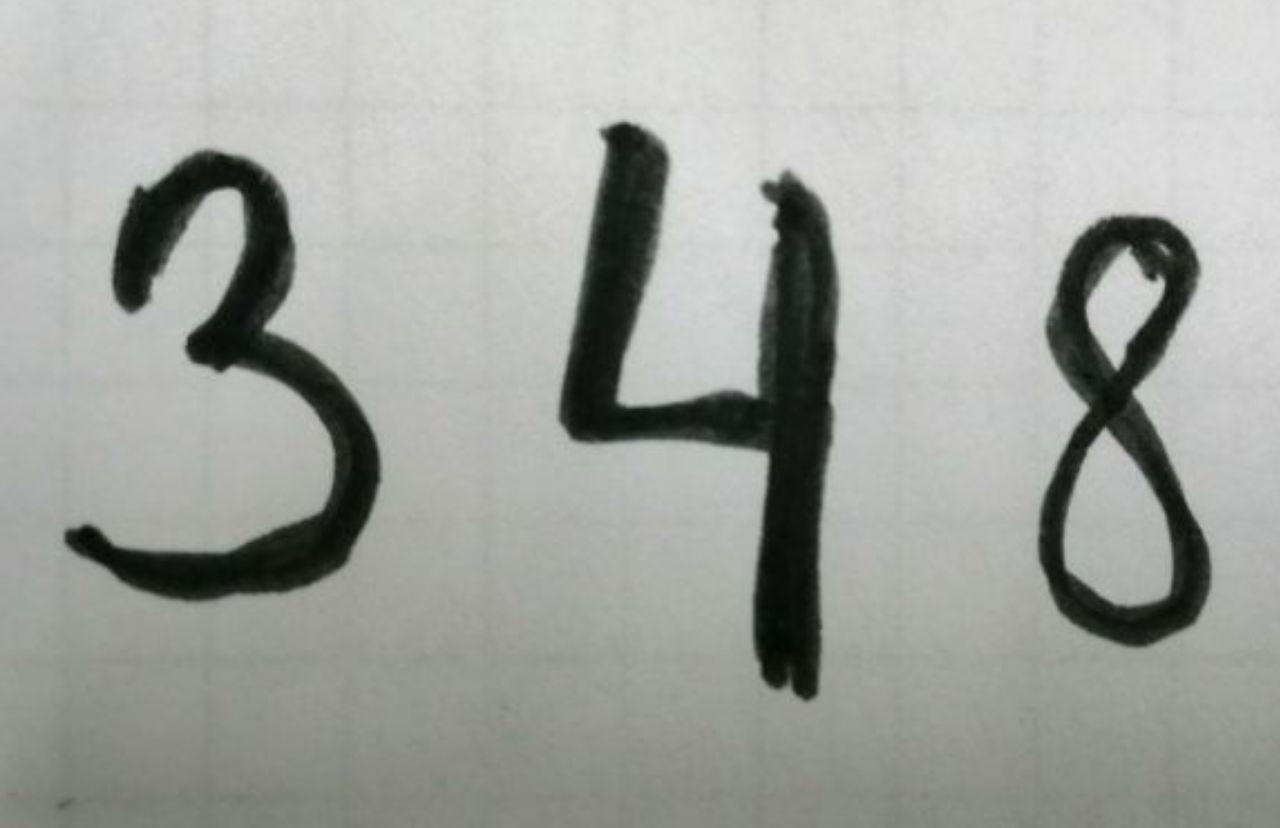 3 4 8